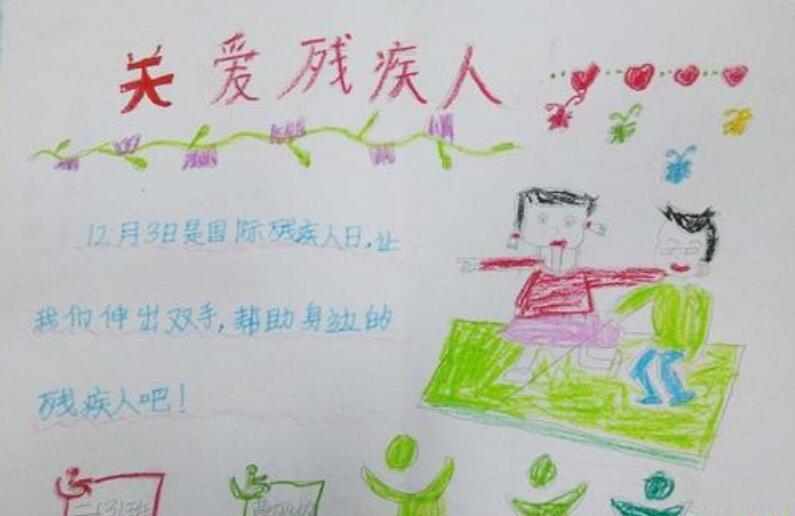 关爱残疾人
12月3日是国际残疾人日,让
我们伸出双手,帮助身边的
残疾人吧!
二(3)班